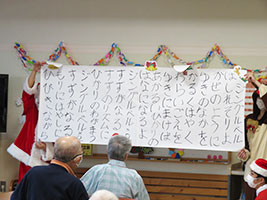 ジングルベル
はしれそりよ
かぜのように
ゆきのなかを
かるくはやく
わらいごえを
ゆきにまけば
はなになるよ
ジングルベル
すずがなる
すずのリズムに
ひかりのわがまう
ジングルベル
すずがなる
もりにはやしに
ひびきながら